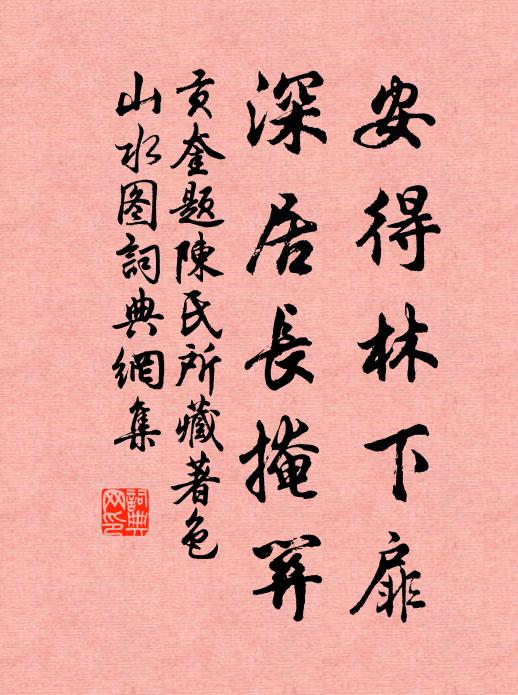 安得林下扉
深居長掩关
贡奎题陳氏所藏著色
山水图詞典網集
詞典网印